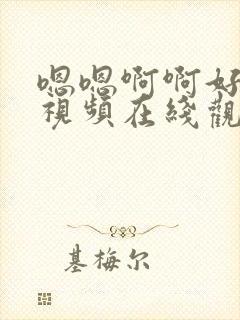 嗯嗯啊啊好
視頻在綫觀
基梅尔